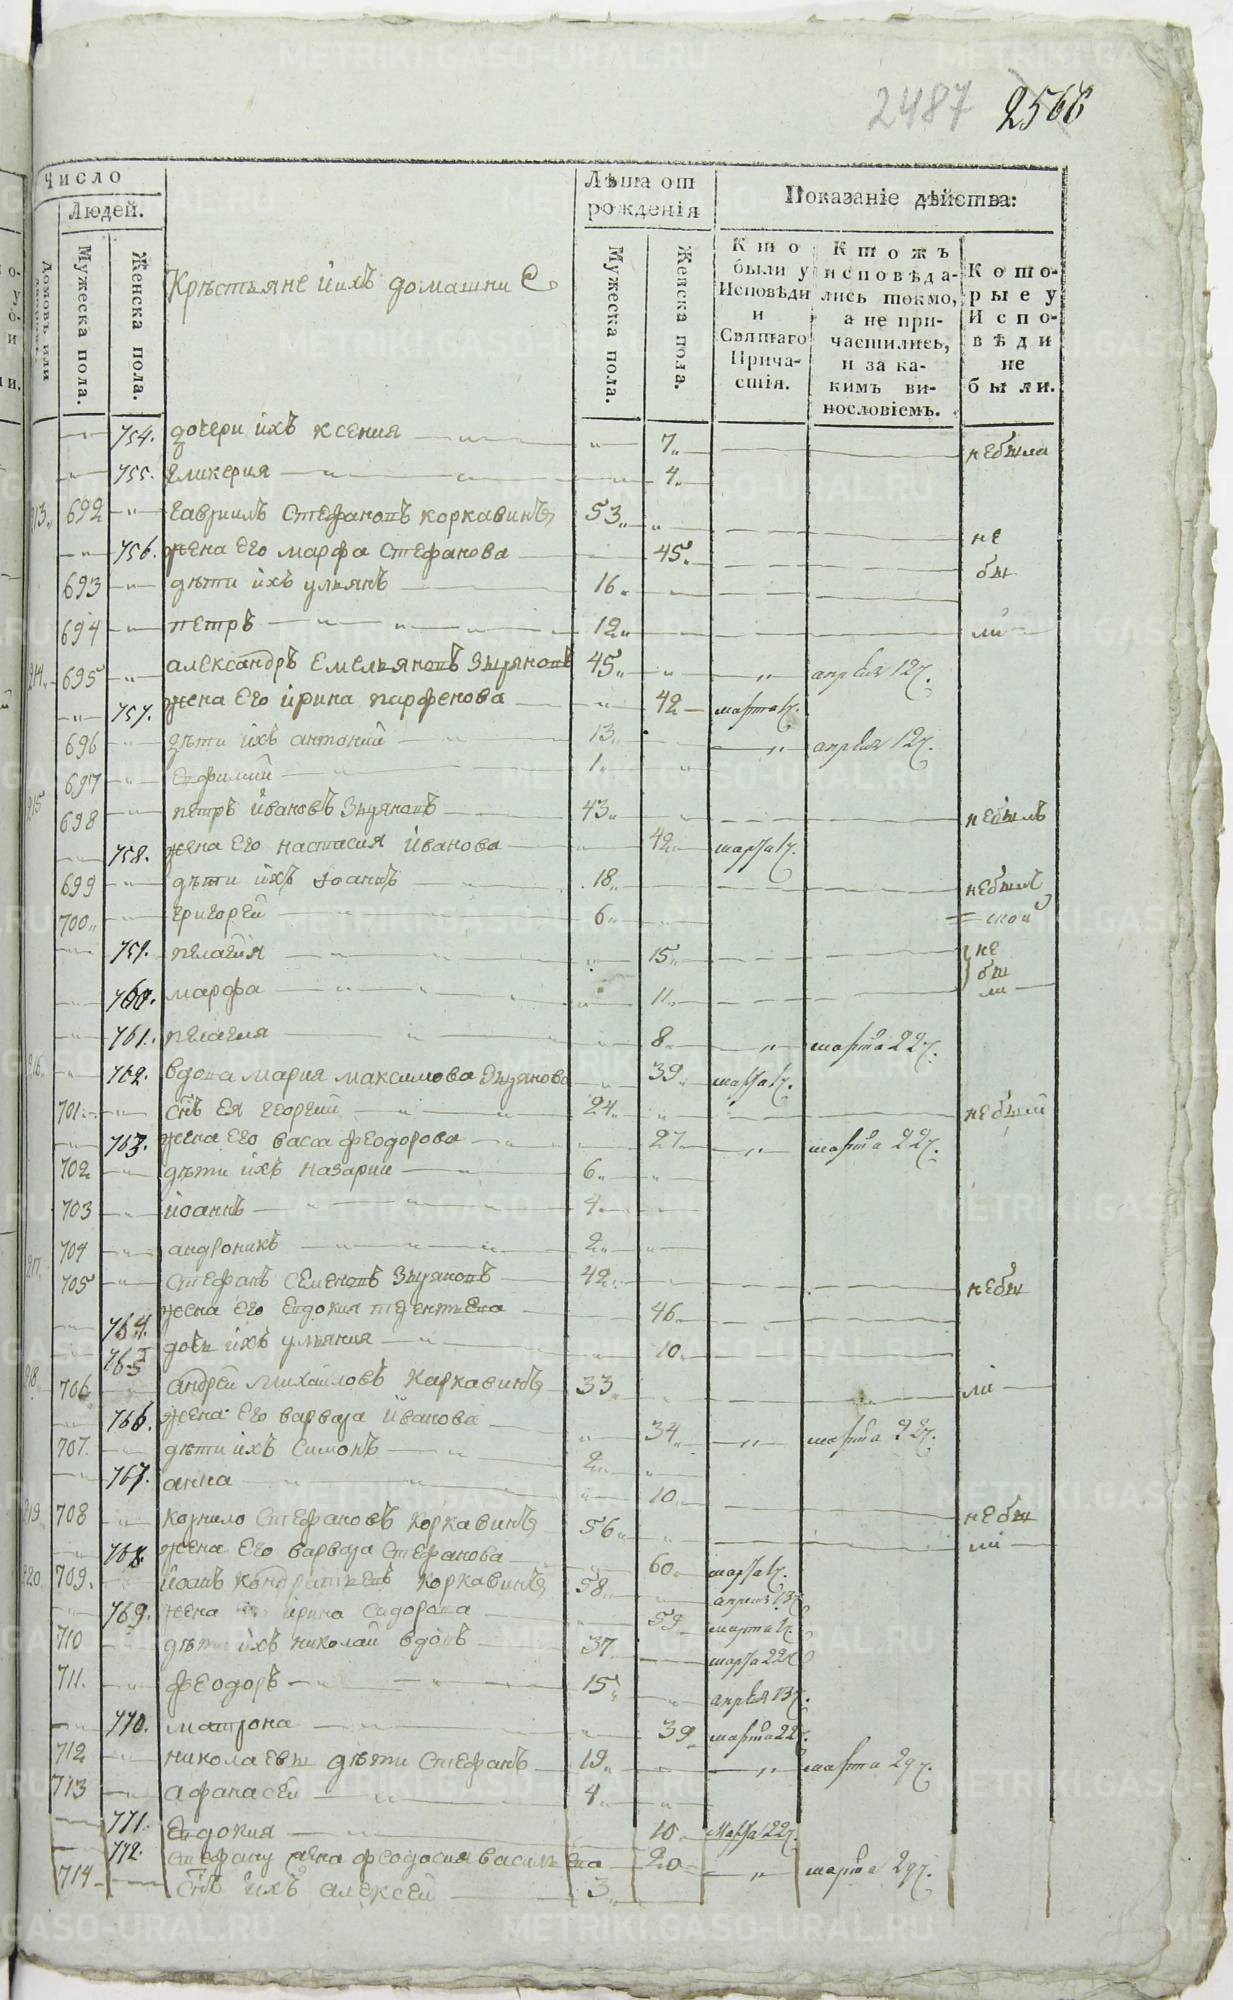 2487 2566
Число
Людей.
Домовъ или
Мужеска пола.
Женска пола.
Крѣстьяне йихъ домашниє
Лѣта от рожденія
Мужеска пола.
Женска пола.
Показаніе дѣйства:
Кто были у Исповѣди и Святаго Причастія.
Ктожъ исповѣдались токмо, а не причастились, и за каким винословіемъ.
Которые у Исповѣди не были.
754. дочери ихъ ксения 7 небыла
755. гликерия 4
213 692 гавриилъ стефановъ коркавинъ 53
756. жена его марфа стефанова 45 не
693 дѣти ихъ ульянъ 16 бы
694 петръ 12 ли
214 695 александръ емельяновъ зыряновъ 45 апреля 12ч.
757. жена его ирина парфенова 42 марта
696 дѣти ихъ антоний 13 апреля 12ч.
697 евфимий 1
215 698 петръ йвановъ зыряновъ 43 небылъ
758. жена его настасия йванова 42 марта
699 дѣти ихъ иоаннъ 18 небыл
700 григорей 6
759. пелагия 15 не
760. марфа 11 бы ли
761. пелагия 8 марта 22ч.
216 762. вдова мария максимова зырянова 39 марта
701 снъ ея георгий 24
763. жена его васса феодорова 27 марта 22ч.
702 дѣти ихъ назарий 6
703 йоаннъ 4
704 андроникъ 2
217 705 стефанъ семеновъ зыряновъ 42 небы
764. жена его евдокия 46
765 дочь ихъ ульяния 10
218 706 андрей михайловъ каркавинъ 33 ли
766. жена его варвара йванова 34 марта 22ч.
707 дѣти ихъ симонъ 2
767. анна 10
219 708 корнило стефановъ коркавинъ 56 небы
768. жена его варвара стефанова 60 марта ли
220 709 йоанъ кондратьевъ коркавинъ 58 апреля 13ч
769. жена ирина сидорова 59 марта
710 дѣти ихъ николай вдовъ 37 марта 22ч
711. феодоръ 15 апреля 13ч.
770. матрона 39 марта 22ч.
712 николаевы дѣти стефанъ 19 марта 29ч.
713 афанасей 4
771. евдокия 10 марта 22ч.
772. стефану жена феодосия васильева 20 марта 29ч.
714 снъ ихъ алексей 3
METRIKI.GASO-URAL.RU